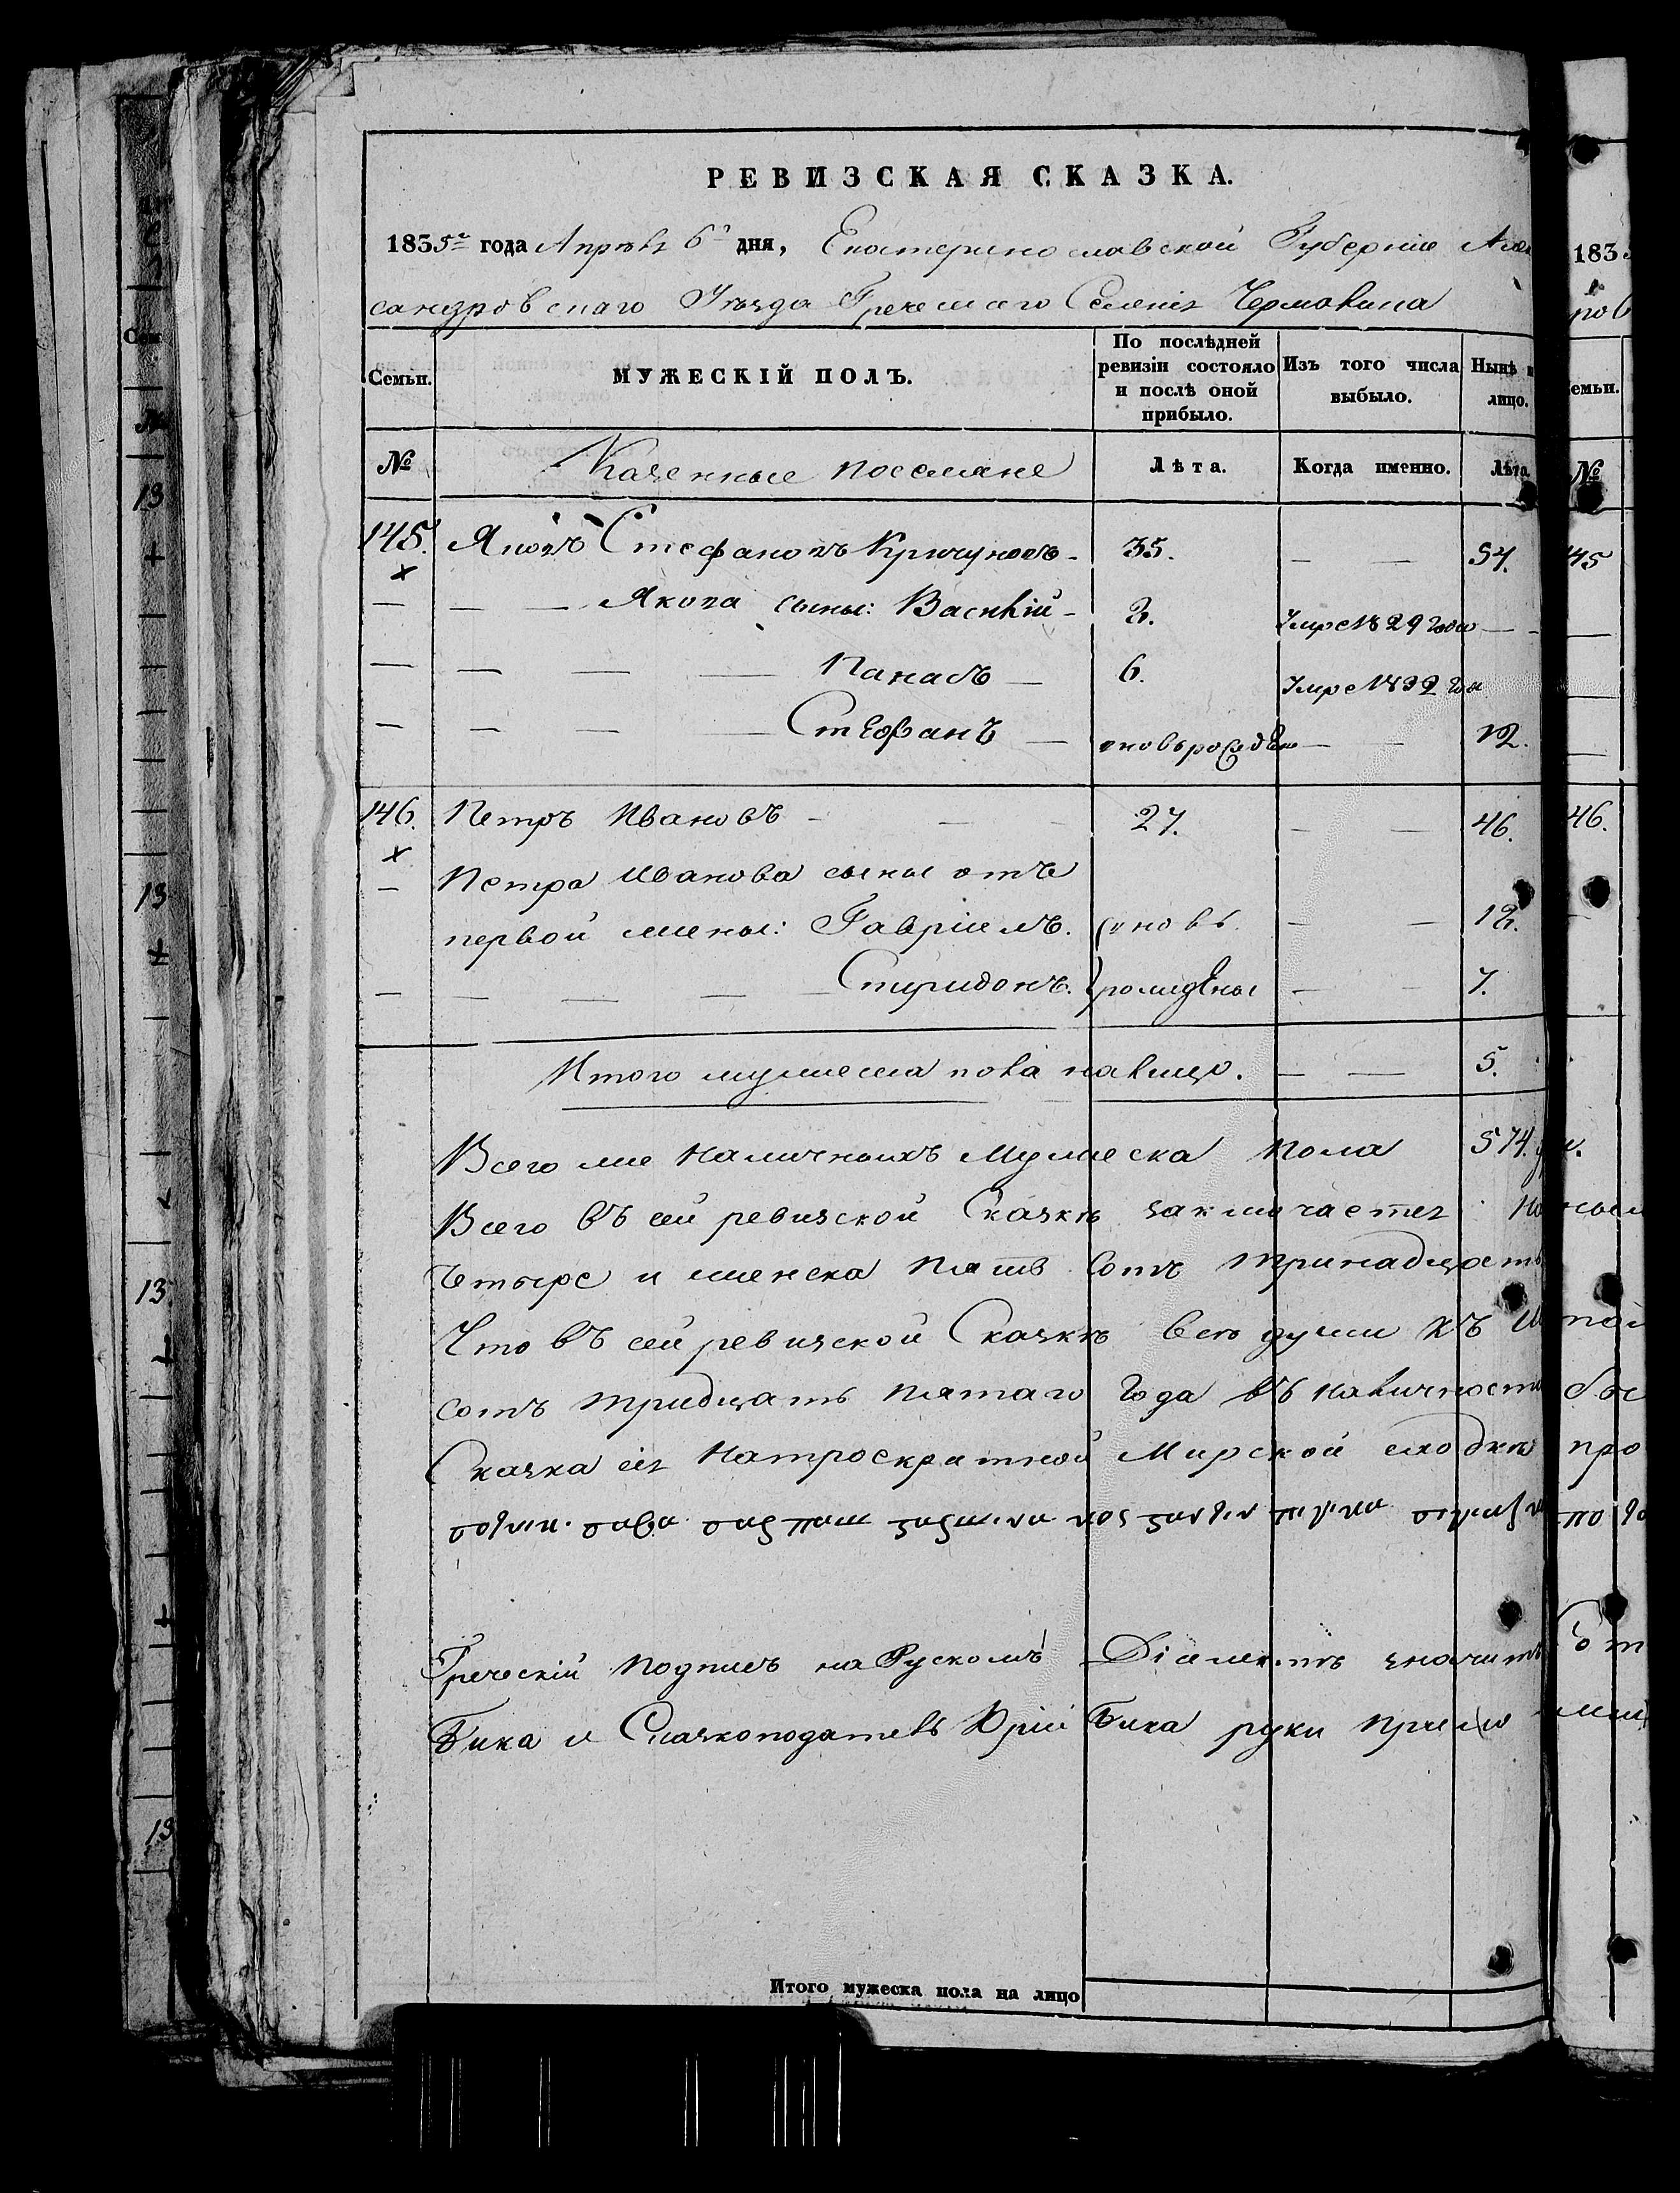 РЕВИЗСКАЯ СКАЗКА.
1835го года Апрѣля 6го дня, Екатеринославской Губерніи Алек
сандровскаго Уѣзда Греческаго Селенія Чермалика
Семьи. МУЖЕСКІЙ ПОЛЪ. По послѣдней ревизіи состояло и послѣ оной прибыло. Изъ того числа выбыло. Нынѣ на лицо.
№ Казенные поселяне Лѣта. Когда именно. Лѣта.
145. Яковъ Стефановъ - 35. — — 54.
— — — Якова сыны: Василій - 2. Умре 1829 года — -
— — — — Панасъ — 6. Умре 1832 года
— — — — Стефанъ — вновьрожденъ — — 12.
146. Петръ Ивановъ - — - 27. — — 46.
— Петра Иванова сыны отъ
первой жены: Гавріилъ. вновь — — 12.
— — — — Спиридонъ. рождены — - 7.
Итого мужеска пола налицо. — — 5.
Всего же наличныхъ Мужеска пола 574.
Всего въ сей ревизской Сказкѣ заключается
четыре и женска пять сотъ тринадцать
Что въ сей ревизской Сказкѣ всѣ души къ
сотъ тридцать пятаго года въ наличности
Сказка сія на троекратной Мирской сходкѣ
Греческій подписъ на Рускомъ Діалектѣ значитъ
Бика и Сказкоподатель Юрій Бика руки
Итого мужеска пола на лицо
183
емьи.
№
145
46.
13
13
13
13